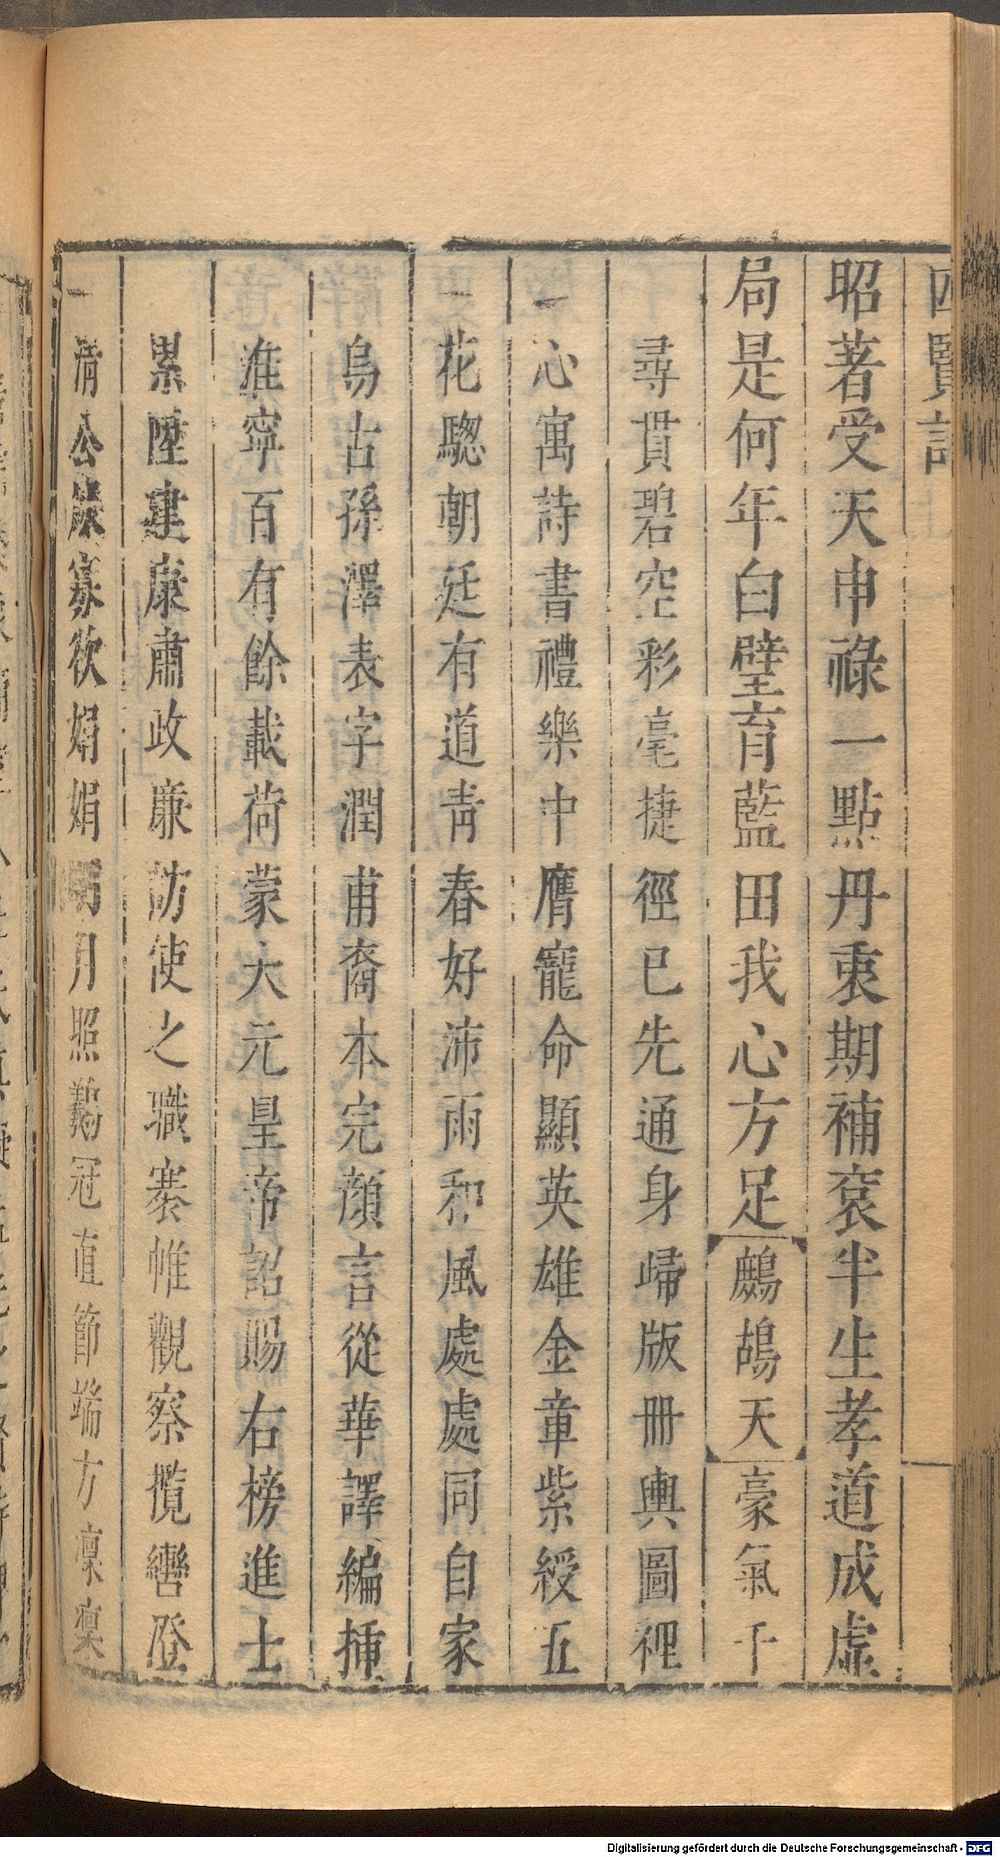 四賢記
昭著受天申祿一點丹衷期補袞半生孝道成虛
局是何年白璧育藍田我心方足【鷓鴣天】豪氣千
尋貫碧空彩毫捷徑已先通身歸版冊輿圖裡
一心寓詩書禮樂中膺寵命顯英雄金章紫綬五
花驄朝廷有道靑春好沛雨和風處處同自家
烏古孫澤表字潤甫裔本完顏言從華譯編揷
淮寧百有餘載荷蒙大元皇帝詔賜右榜進士
累陞建康肅政廉訪使之職褰帷觀察攬轡澄
清公嚴寡欲娟娟 月照鷫冠直節端方凜凜
Digitalisierung gefördert durch die Deutsche Forschungsgemeinschaft - DFG